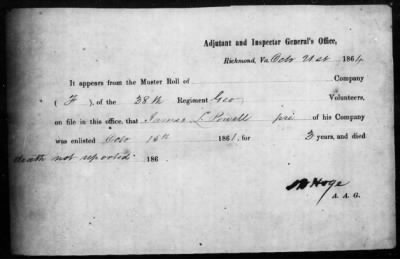 Adjutant and Inspector General's Office,
Richmond, Va. Octo 21st 1864
It appears from the Muster Roll of Company
( F ), of the 38th Regiment Geo Volunteers,
on file in this office, that James L Powell pri of his Company
was enlisted Octo 15th 1861, for 3 years, and died
death not reported 186
Hoge
A. A. G.